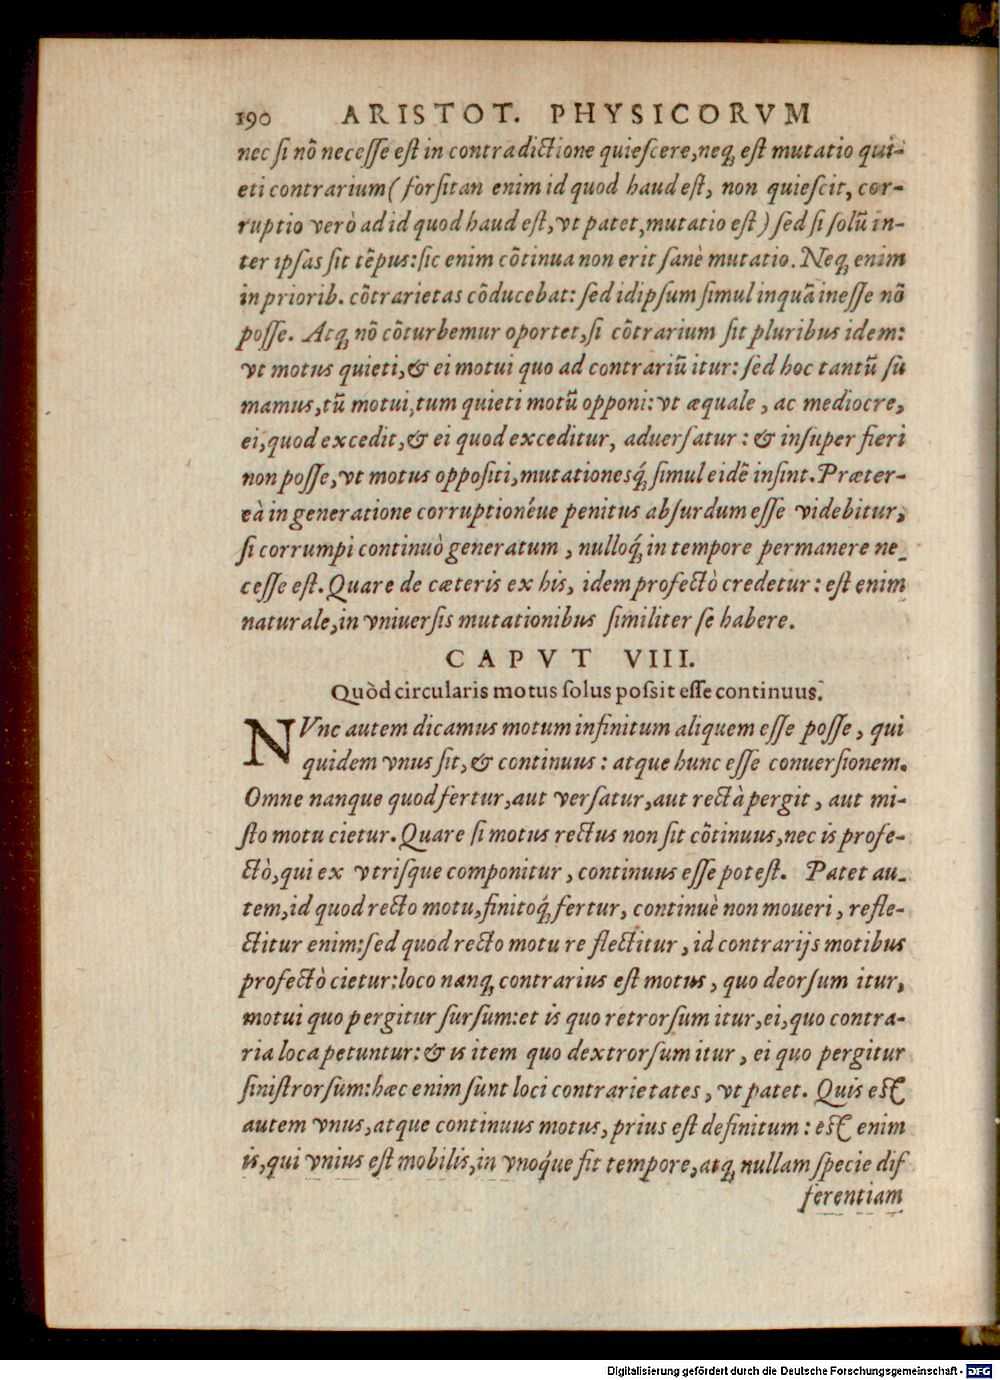 190 ARISTOT. PHYSICORVM
nec si nõ necesse est in contradictione quiescere, neq; est mutatio qui-
eti contrarium (forsitan enim id quod haud est, non quiescit, cor-
ruptio verò ad id quod haud est, vt patet, mutatio est) sed si solũ in-
ter ipsas sit tẽpus: sic enim cõtinua non erit sanè mutatio. Neq; enim
in priorib. cõtrarietas cõducebat: sed id ipsum simul inquã inesse nõ
posse. Atq; nõ cõturbemur oportet, si cõtrarium sit pluribus idem:
vt motus quieti, & ei motui quo ad contrariũ itur: sed hoc tantũ su
mamus, tũ motui, tum quieti motũ opponi: vt æquale, ac mediocre,
ei, quod excedit, & ei quod exceditur, aduersatur: & insuper fieri
non posse, vt motus oppositi, mutationesq́; simul eidẽ insint. Præter-
eà in generatione corruptionéue penitus absurdum esse videbitur,
si corrumpi continuò generatum, nulloq́; in tempore permanere ne-
cesse est. Quare de cæteris ex his, idem profectò credetur: est enim
naturale, in vniuersis mutationibus similiter se habere.
CAPVT VIII.
Quòd circularis motus solus possit esse continuus.
NVnc autem dicamus motum infinitum aliquem esse posse, qui
quidem vnus sit, & continuus: atque hunc esse conuersionem.
Omne nanque quod fertur, aut versatur, aut rectà pergit, aut mi-
sto motu cietur. Quare si motus rectus non sit cõtinuus, nec is profe-
ctò, qui ex vtrisque componitur, continuus esse potest. Patet au-
tem, id quod recto motu, finitoq́; fertur, continuè non moueri, refle-
ctitur enim: sed quod recto motu reflectitur, id contrarijs motibus
profectò cietur: loco nanq; contrarius est motus, quo deorsum itur,
motui quo pergitur sursum: et is quo retrorsum itur, ei, quo contra-
ria loca petuntur: & is item quo dextrorsum itur, ei quo pergitur
sinistrorsum: hæc enim sunt loci contrarietates, vt patet. Quis est
autem vnus, atque continuus motus, prius est definitum: est enim
is, qui vnius est mobilis, in vnoq́ue fit tempore, atq; nullam specie dif
ferentiam
Digitalisierung gefördert durch die Deutsche Forschungsgemeinschaft - DFG